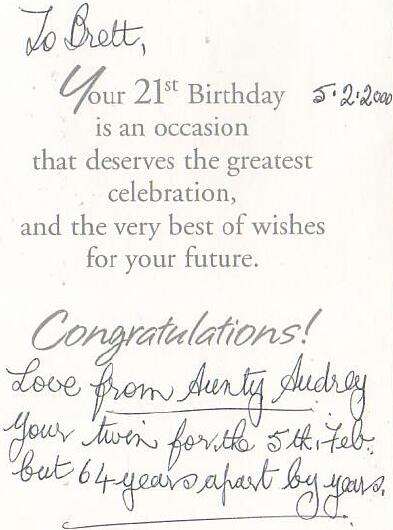 To Brett,
Your 21st Birthday 5.2.2000
is an occasion
that deserves the greatest
celebration,
and the very best of wishes
for your future.
Congratulations!
Love from Aunty Audrey
Your twin for the 5th. Feb.
but 64 years apart by years.